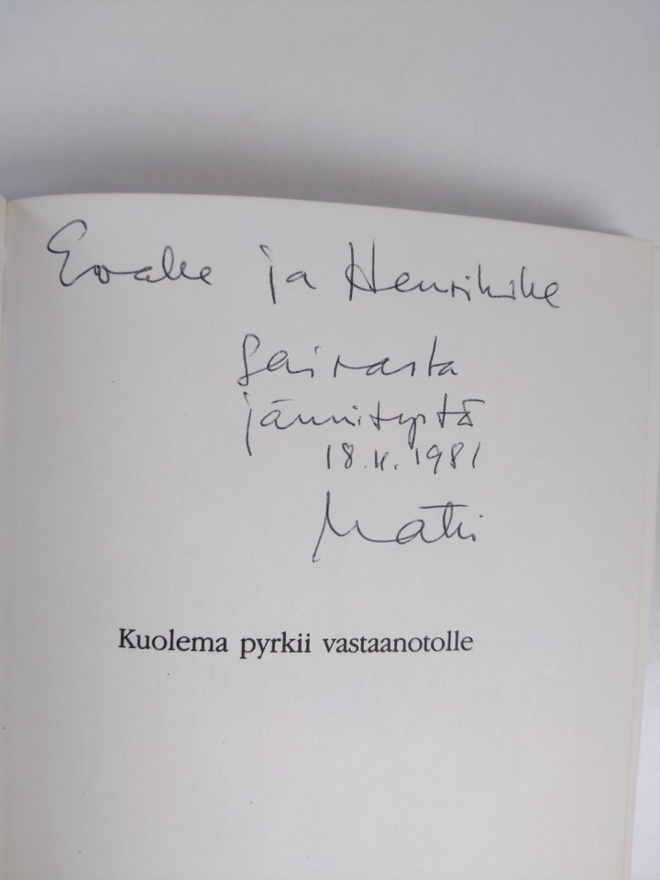 Evalle ja Henrikille
Sairasta
jännitystä
18.V. 1981
Matti
Kuolema pyrkii vastaanotolle